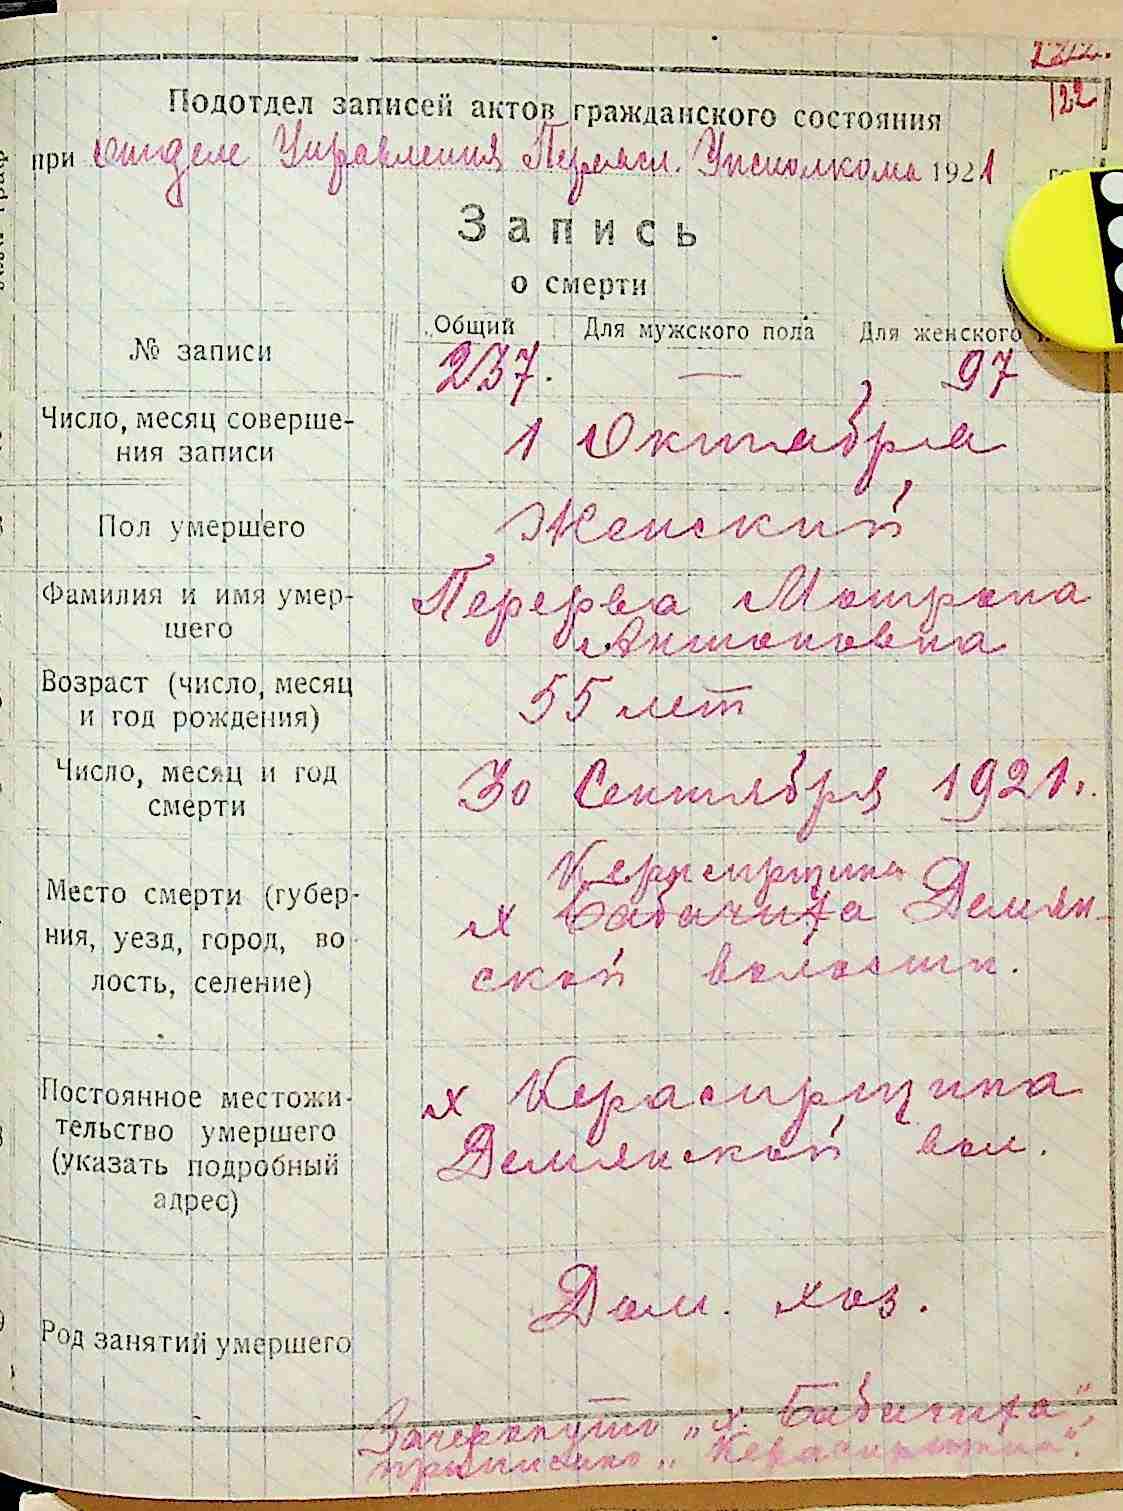 122
Подотдел записей актов гражданского состояния
при отделе Управления Переясл. Уисполкома 1921
Запись
о смерти
№ записи Общий Для мужского пола Для женского
237. — 97
Число, месяц соверше-
ния записи
1 Октября
Пол умершего Женский
Фамилия и имя умер-
шего
Перерва Мотрона
Антоновна
Возраст (число, месяц
и год рождения)
55 лет
Число, месяц и год
смерти
30 Сентября 1921.
Место смерти (губер-
ния, уезд, город, во
лость, селение)
х Бабачиха Демян-
ской волости.
Постоянное местожи-
тельство умершего
(указать подробный
адрес)
х
Демянской вол.
Род занятий умершего Дом. хоз.
Зачеркнуто „х. Бабачиха",